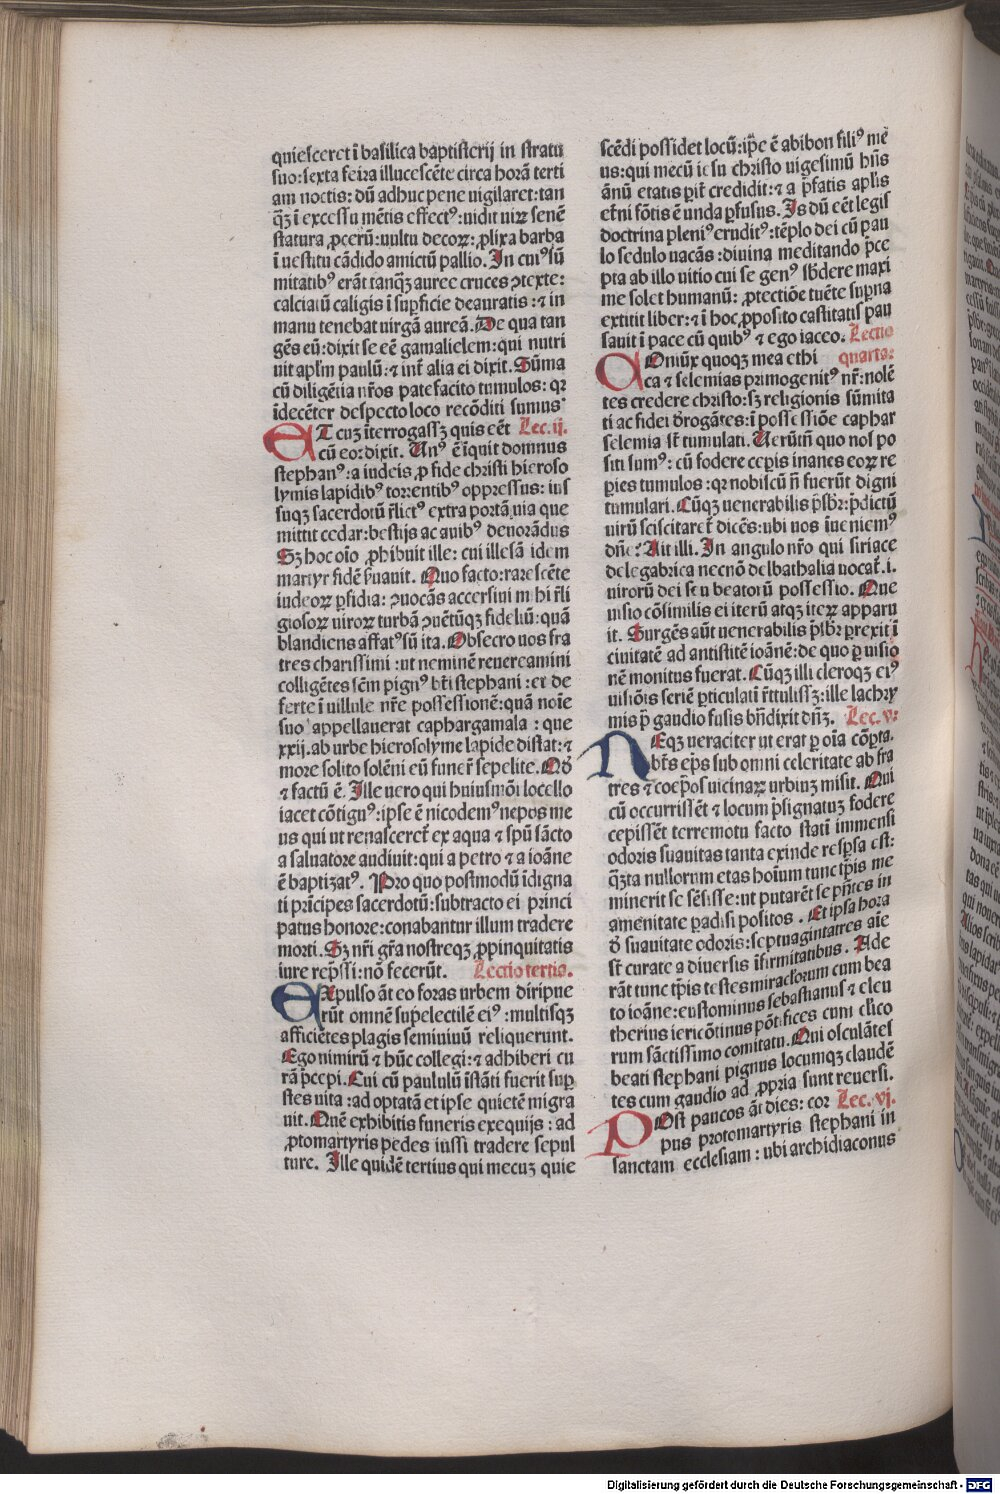 quiesceret ī basilica baptisterij in stratu
suo: sexta feira illucescēte circa horā terti
am noctis: dū adhuc pene uigilaret: tan
qȝ ī excessu mētis effectꝰ: uidit uiꝝ senē
statura ꝓcerū: uultu decoꝝ: ꝓlixa barba
ī uestitu cādido amictū pallio. In cuiꝰ sū
mitatibꝰ erāt tanqȝ auree cruces ꝯtexte:
calciatū caligis ī suꝑficie deauratis: ⁊ in
manu tenebat uirgā aureā. De qua tan
gēs eū: dixit se eē gamalielem: qui nutri
uit apl'm paulū: ⁊ int̄ alia ei dixit. Sūma
cū diligētia nr̄os patefacito tumulos: qꝛ
īdecēter despecto loco recōditi sumus
ET cuȝ īterrogassȝ quis eēt Lec. ij.
cū eo: dixit. Unꝰ ē īquit domnus
stephanꝰ: a iudeis ꝓ fide christi hieroso
lymis lapidibꝰ torrentibꝰ oppressus: ius
suqȝ sacerdotū r̄lictꝰ extra portā uia que
mittit cedar: bestijs ac auibꝰ deuorādus
Sȝ hoc oīo ꝓhibuit ille: cui illesā idem
martyr fidē s̄uauit. Quo facto: rarescēte
iudeoꝝ ꝑfidia: ꝯuocās accersiui mihi r̄li
giosoꝝ uiroꝝ turbā ꝯuētūqȝ fideliū: quā
blandiens affatꝰ sū ita. Obsecro uos fra
tres charissimi: ut neminē reuereamini
colligētes sēm pignꝰ bt̄i stephani: et de
ferte ī uillule nr̄e possessionē: quā noīe
suo appellauerat caphargamala: que
xxij. ab urbe hierosolyme lapide distat: ⁊
more solito solēni eū funer̄ sepelite. Qd̄
⁊ factū ē. Ille uero qui huiusmōi locello
iacet cōtignꝰ: ipse ē nicodemꝰ nepos me
us qui ut renasceret̄ ex aqua ⁊ spū sācto
a saluatore audiuit: qui a petro ⁊ a ioāne
ē baptizatꝰ. Pro quo postmodū īdigna
ti prīcipes sacerdotū: subtracto ei princi
patus honore: conabantur illum tradere
morti. Sȝ nr̄i gr̄a nostreqȝ ꝓpinquitatis
iure rep̄ssi: nō fecerūt. Lectio tertia.
EXpulso āt eo foras urbem diripue
rūt omnē suꝑlectilē eiꝰ: multisqȝ
afficiētes plagis seminiuū reliquerunt.
Ego nimirū ⁊ hūc collegi: ⁊ adhiberi cu
rā p̄cepi. Cui cū paululū īstāti fuerit suꝑ
stes uita: ad optatā et ipse quietē migra
uit. Quē exhibitis funeris exequijs: ad
ꝓtomartyris pedes iussi tradere sepul
ture. Ille quidē tertius qui mecuȝ quie
scēdi possidet locū: ip̄e ē abibon filiꝰ me
us: qui mecū iesu christo uigesimū hn̄s
ānū etatis ꝑit̄ credidit: ⁊ a p̄fatis apl'is
et̄ni fōtis ē unda ꝑfusus. Is dū eēt legis
doctrina pleniꝰ eruditꝰ: tēplo dei cū pau
lo sedulo uacās: diuina meditando p̄ce
pta ab illo uitio cui se genꝰ sb̄dere maxi
me solet humanū: ꝓtectiōe tuēte suꝑna
extitit liber: ⁊ ī hoc ꝓposito castitatis pau
sauit ī pace cū quibꝰ ⁊ ego iaceo. Lectio
DOmūx quoqȝ mea ethi quarta:
ca ⁊ selemias primogenitꝰ nr̄: nolē
tes credere christo: sȝ religionis sūmita
ti ac fidei d̄rogātes: ī possessiōe caphar
selemia st̄ tumulati. Uerūtn̄ quo nos po
siti sumꝰ: cū fodere ceꝑis inanes eoꝝ re
ꝑies tumulos: qꝛ nobiscū n̄ fuerūt digni
tumulari. Cūqȝ uenerabilis p̄sbr̄: p̄dictū
uirū sciscitaret̄ dicēs: ubi uos īueniemꝰ
dn̄e? Ait illi. In angulo nr̄o qui siriace
delegabrica necnō delbathalia uocat̄. i.
uirorū dei seu beatorū possessio. Que
uisio cōsimilis ei iterū atqȝ iteꝝ apparu
it. Surgēs aūt uenerabilis p̄sbr̄ ꝑrexit ī
ciuitatē ad antistitē ioānē: de quo ꝑ uisio
nē monitus fuerat. Cūqȝ illi cleroqȝ eiꝰ
uisiōis seriē ꝑticulati r̄ttulissȝ: ille lachry
mis p̄ gaudio fusis bn̄dixit dn̄ȝ. Lec. v:
NEqȝ ueraciter ut erat ꝑ oīa cōꝑta.
bt̄s eps̄ sub omni celeritate ab fra
tres ⁊ coep̄os uicinaꝝ urbiuȝ misit. Qui
cū occurrissēt ⁊ locum p̄signatuȝ fodere
cepissēt terremotu facto statī immensi
odoris suauitas tanta exinde resꝑsa est:
qȝta nullorum etas hoīum tunc tꝑis me
minerit se sēsisse: ut putarēt se pn̄tes in
amenitate ꝑadisi positos. Et ipsa hora
d̄ suauitate odoris: septuagintatres aīe
st̄ curate a diuersis īfirmitatibus. Ade
rāt tunc tꝑis testes miraclorum cum bea
to ioāne: eustominus sebastianus ⁊ eleu
therius iericōtinus pōtifices cum cl'ico
rum sāctissimo comitatu. Qui osculātes
beati stephani pignus locumqȝ claudē
tes cum gaudio ad ꝓpria sunt reuersi.
POst paucos āt dies: cor Lec. vj.
pus protomartyris stephani in
sanctam ecclesiam: ubi archidiaconus
Digitalisierung gefördert durch die Deutsche Forschungsgemeinschaft - DFG